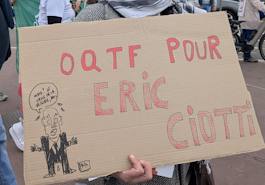 OQTF POUR
ERIC
CIOTTI